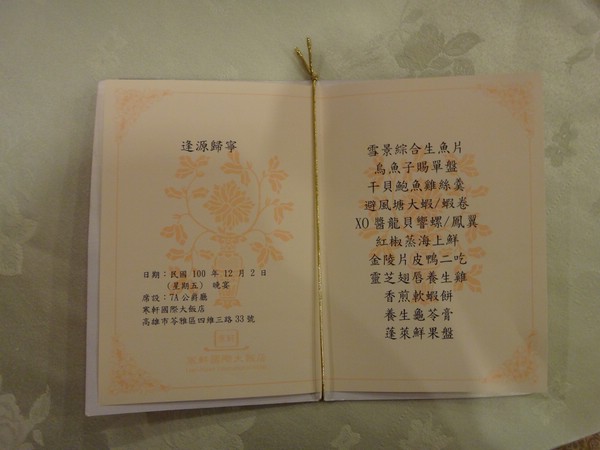 逢源歸寧
日期：民國 100 年 12 月 2 日
(星期五) 晚宴
席設：7A公爵廳
寒軒國際大飯店
高雄市苓雅區四維三路33號
寒軒國際大飯店
雪景綜合生魚片
烏魚子賜單盤
干貝鮑魚雞絲羹
避風塘大蝦/蝦卷
XO醬龍貝響螺/鳳翼
紅椒蒸海上鮮
金陵片皮鴨二吃
靈芝翅唇養生雞
香煎軟蝦餅
養生龜苓膏
蓬萊鮮果盤